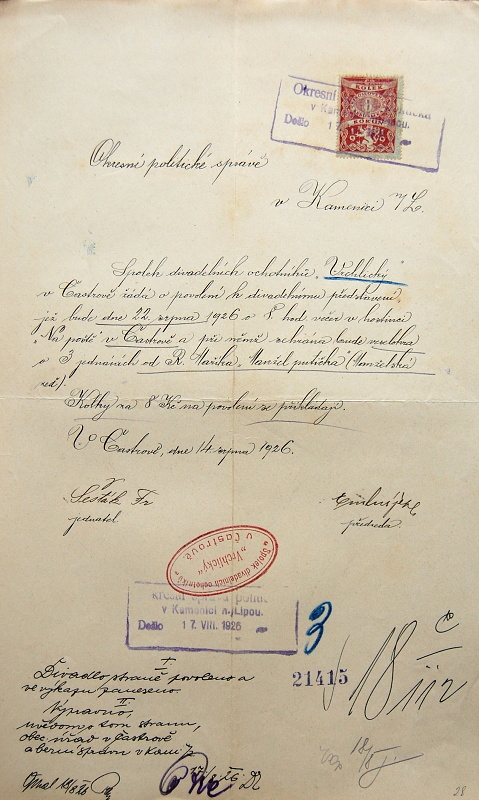 Okresní
v Kam
Došlo 17. VIII.
KOLEK
Okresní politické správě
v Kamenici n/L.
Spolek divadelních ochotníků "Vrchlický"
v Častrově žádá o povolení k divadelnímu představení,
jež bude dne 22. srpna 1926 o 8 hod večer v hostinci
"Na poště" v Častrově a při němž sehrána bude veselohra
o 3 jednáních od R. "Manžel putička" (Manželská
Kolky za 8 Kč na povolení se přikládají.
V Častrově, dne 14 srpna 1926.
Šesták Fr
jednatel
předseda
"Spolek divadelních ochotníků"
"Vrchlický"
v Častrově
kresní správa politic
v Kamenici n. Lipou.
Došlo 17. VIII. 1926
3
21415
I.
Divadlo straně povoleno a
ve výkazu zaneseno.
II.
Vypravno,
uvědom o tom stranu,
obec. úřad v Častrově
a berní správu v Kam
18/8
28